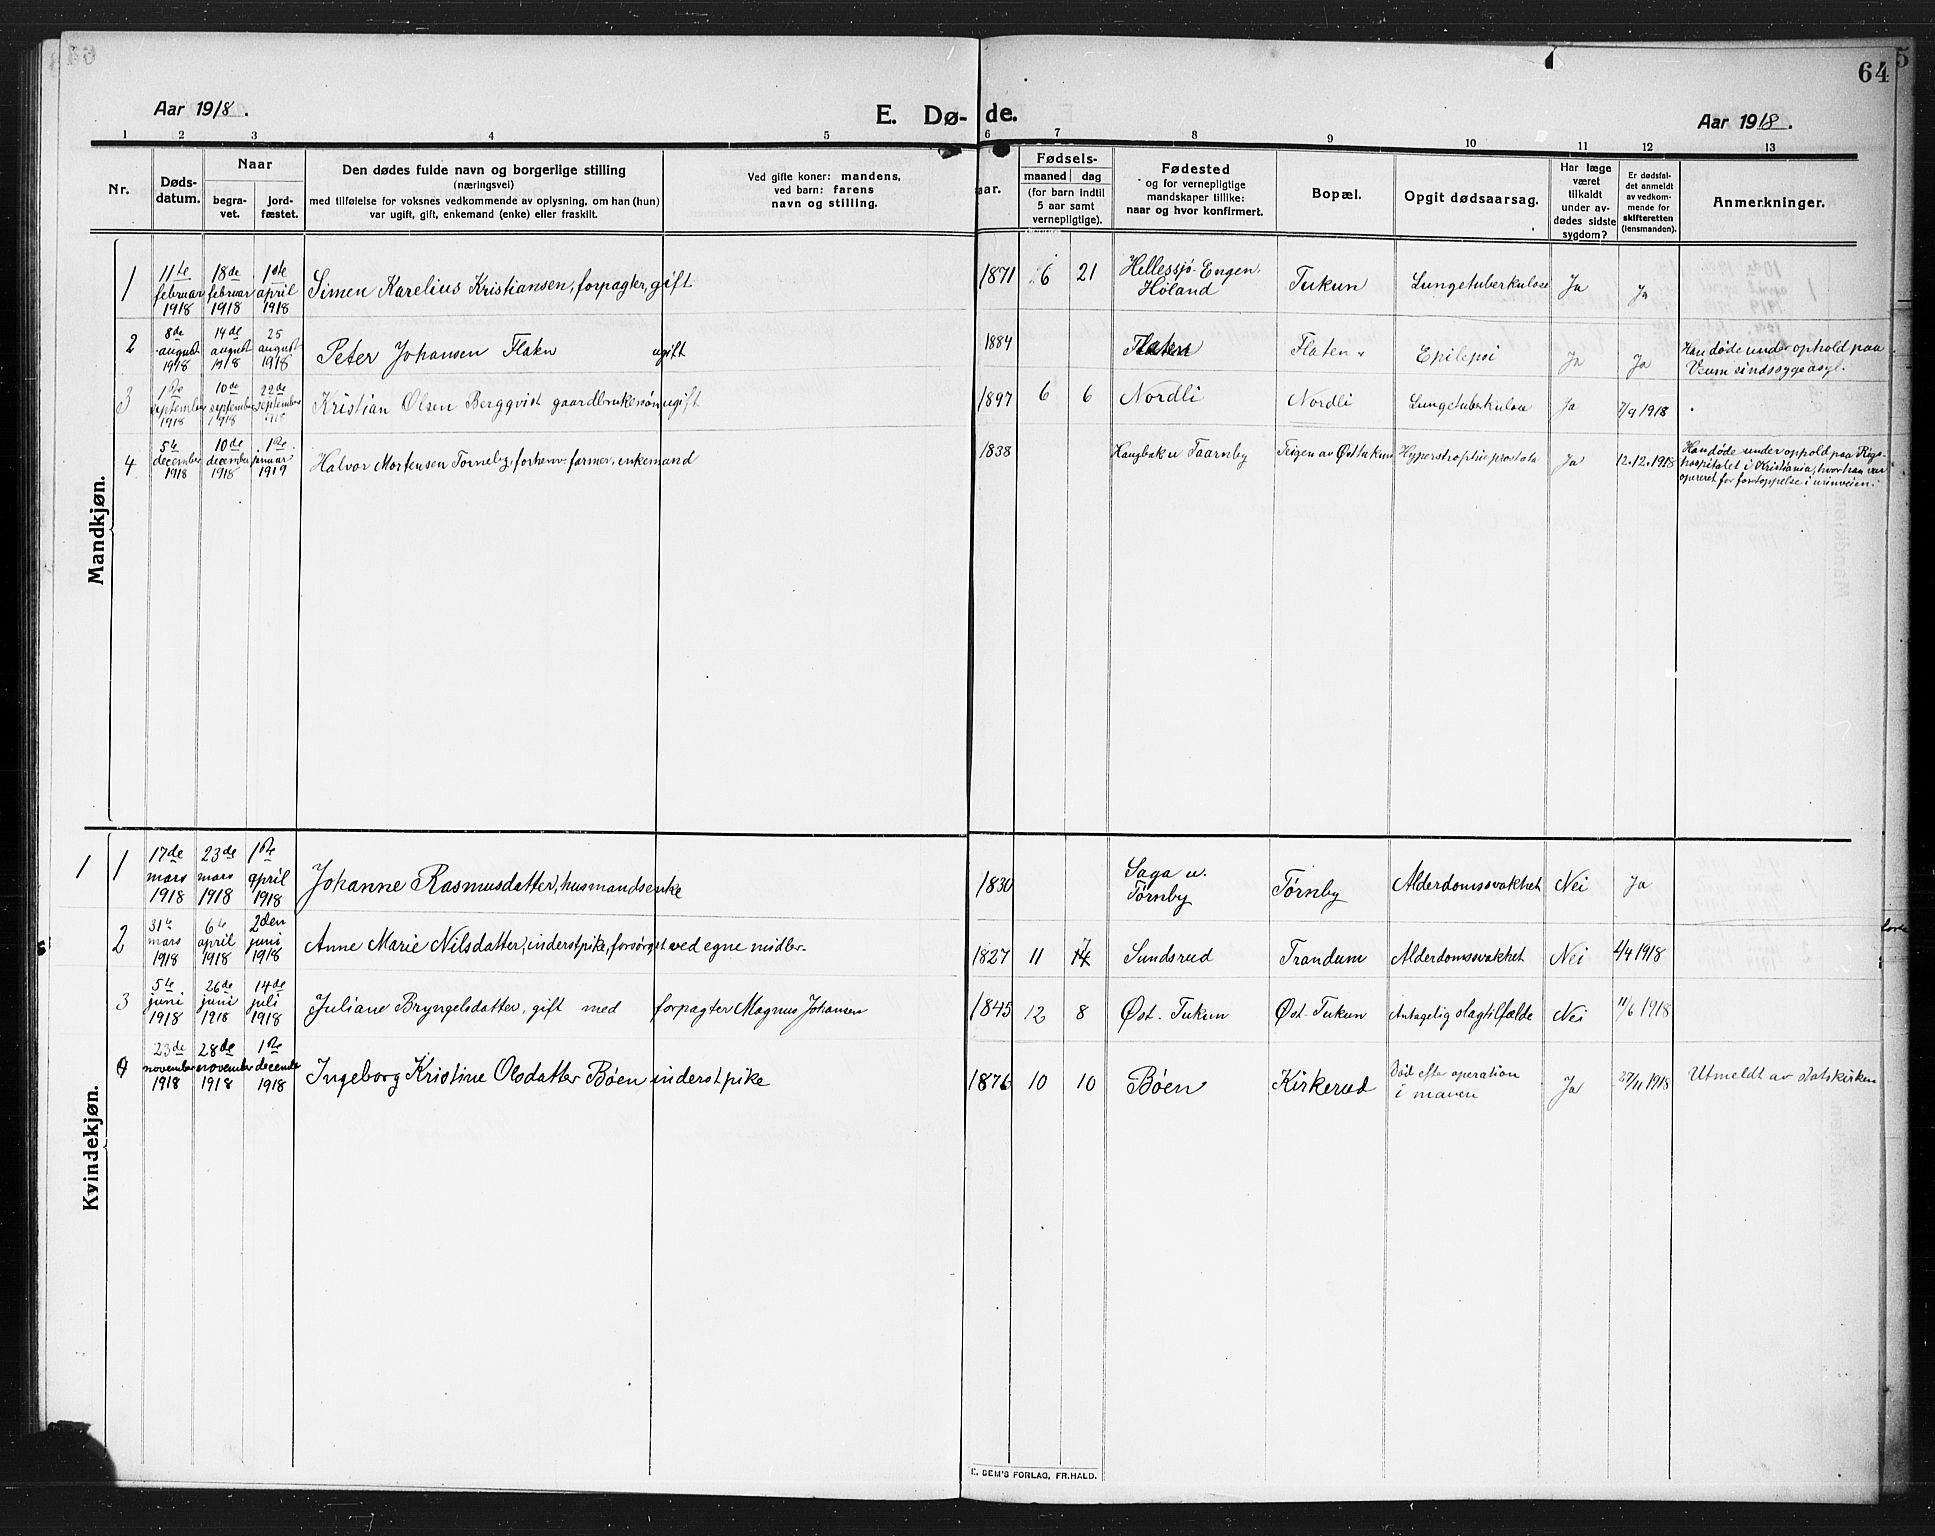 64
Aar 1918.
E. Dø-de.
Aar 1918.
1 2 3 4 5 6 7 8 9 10 11 12 13
Nr.
Døds-
datum.
Naar
begra-
vet.
jord-
fæstet.
Den dødes fulde navn og borgerlige stilling
(næringsvei)
med tilføielse for voksnes vedkommende av oplysning, om han (hun)
var ugift, gift, enkemand (enke) eller fraskilt.
Ved gifte koner: mandens,
ved barn: farens
navn og stilling.
aar.
Fødsels-
maaned dag
(for barn indtil
5 aar samt
vernepligtige).
Fødested
og for vernepligtige
mandskaper tillike:
naar og hvor konfirmert.
Bopæl.
Opgit dødsaarsag.
Har læge
været
tilkaldt
under av-
dødes sidste
sygdom?
Er dødsfal-
det anmeldt
av vedkom-
mende for
skifteretten
(lensmanden).
Anmerkninger.
Mandkjøn.
1
11te
februar
1918
18de
februar
1918
1ste
april
1918
Simen Karelius Kristiansen, forpagter, gift
1871 6 21
Hellessjø-Engen,
Høland
Tukun
Lungetuberkulose
Ja
Ja
2
8de
august
1918
14de
august
1918
25
august
1918
Peter Johansen Flaten ugift
1884
Flaten
Flaten
Epilepsi
Ja
Ja
Han døde under ophold paa
Veum sindssygeasyl.
3
1ste
september
1918
10de
september
1918
22de
september
1918
Kristian Olsen Bergqvist gaardbrukersøn ugift
1897 6 6
Nordli
Nordli
Lungetuberkulose
Ja
7/9 1918
4
5te
december
1918
10de
december
1918
1ste
januar
1919
Halvor Mortensen Torneby, forhenv. farmer, enkemand
1838
Haugbak u Taarnby
Teigen av Østtukun
Hyperstroptie prostata
Ja
12.12.1918
Han døde under ophold paa Rigs-
hospitalet i Kristiania, hvor han var
operert for forstoppelse i urinveien.
Kvindekjøn.
1
1
17de
mars
1918
23de
mars
1918
1ste
april
1918
Johanne Rasmusdatter, husmandsenke
1830
Saga u.
Tørnby
Tørnby
Alderdomssvakhet
Nei
Ja
2
31te
mars
1918
6te
april
1918
2den
juni
1918
Anne Marie Nilsdatter, inderstpike, forsørget ved egne midler.
1827 11
Sundsrud
Trandum
Alderdomssvakhet
Nei
4/4 1918
3
5te
juni
1918
26de
juni
1918
14de
juli
1918
Juliane Bryngelsdatter, gift med forpagter Magnus Johansen
1845 12 8
Øst-Tukun
Øst-Tukun
Antagelig slagtilfælde
Nei
11/6 1918
4
23de
november
1918
28de
november
1918
1ste
december
1918
Ingeborg Kristine Olsdatter Bøen, inderstpike
1876 10 10
Bøen
Kirkerud
Død efter operation
i maven
Ja
27/11 1918
Utmeldt av statskirken
E. SEM'S FORLAG, FR.HALD.